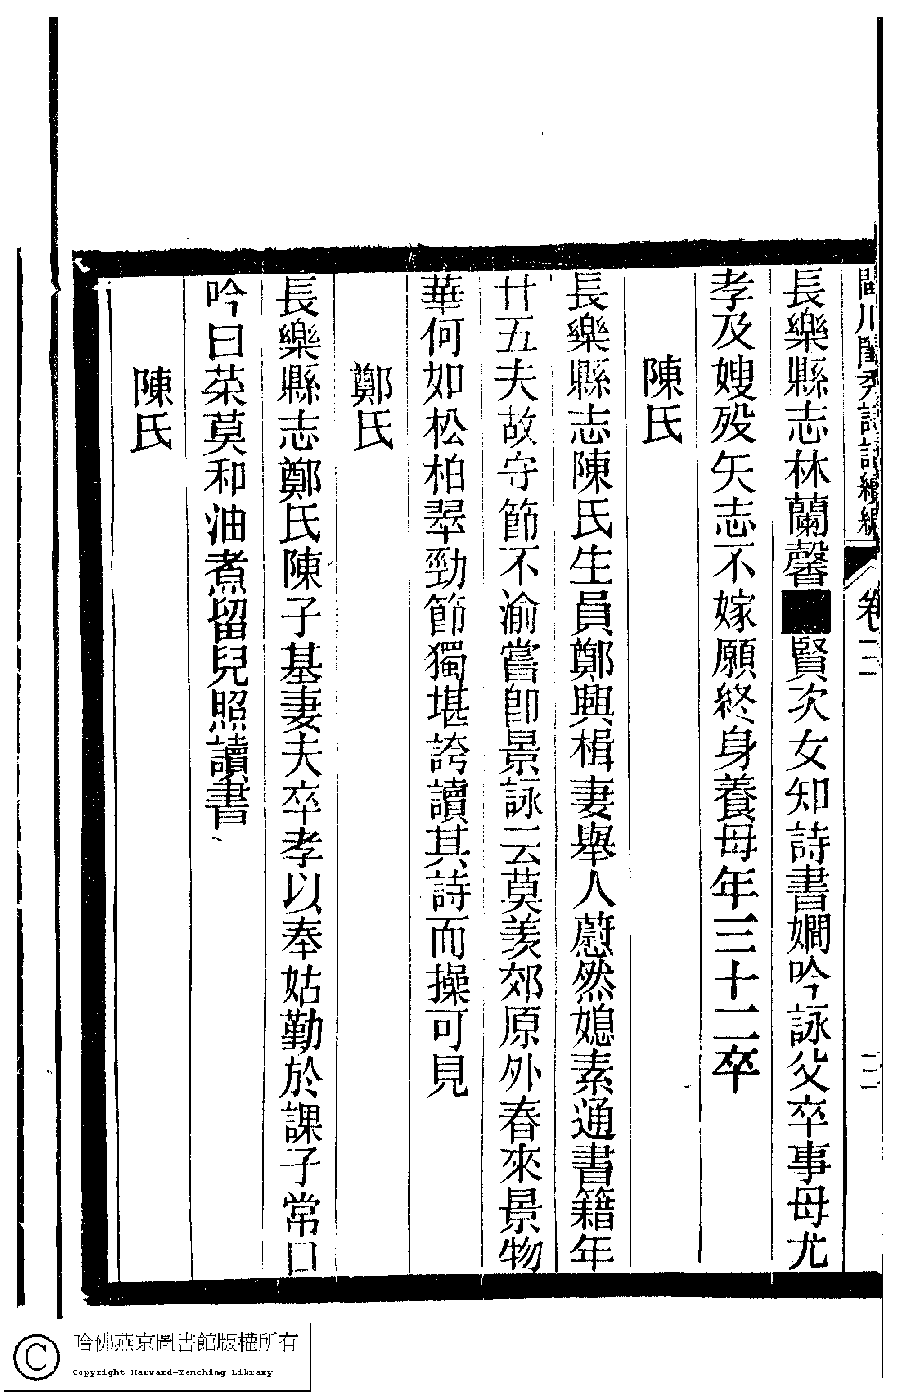 閩川閨秀詩話續編 卷二 二
長樂縣志林蘭馨■賢次女知詩書嫺吟詠父卒事母尤
孝及嫂歿矢志不嫁願終身養母年三十二卒
陳氏
長樂縣志陳氏生員鄭興楫妻舉人蔚然媳素通書籍年
廿五夫故守節不渝嘗卽景詠云莫羨郊原外春來景物
華何如松柏翠勁節獨堪誇讀其詩而操可見
鄭氏
長樂縣志鄭氏陳子基妻夫卒孝以奉姑勤於課子常口
吟曰茶莫和油煮留兒照讀書
陳氏
哈佛燕京圖書館版權所有
Copyright Harvard-Yenching Library